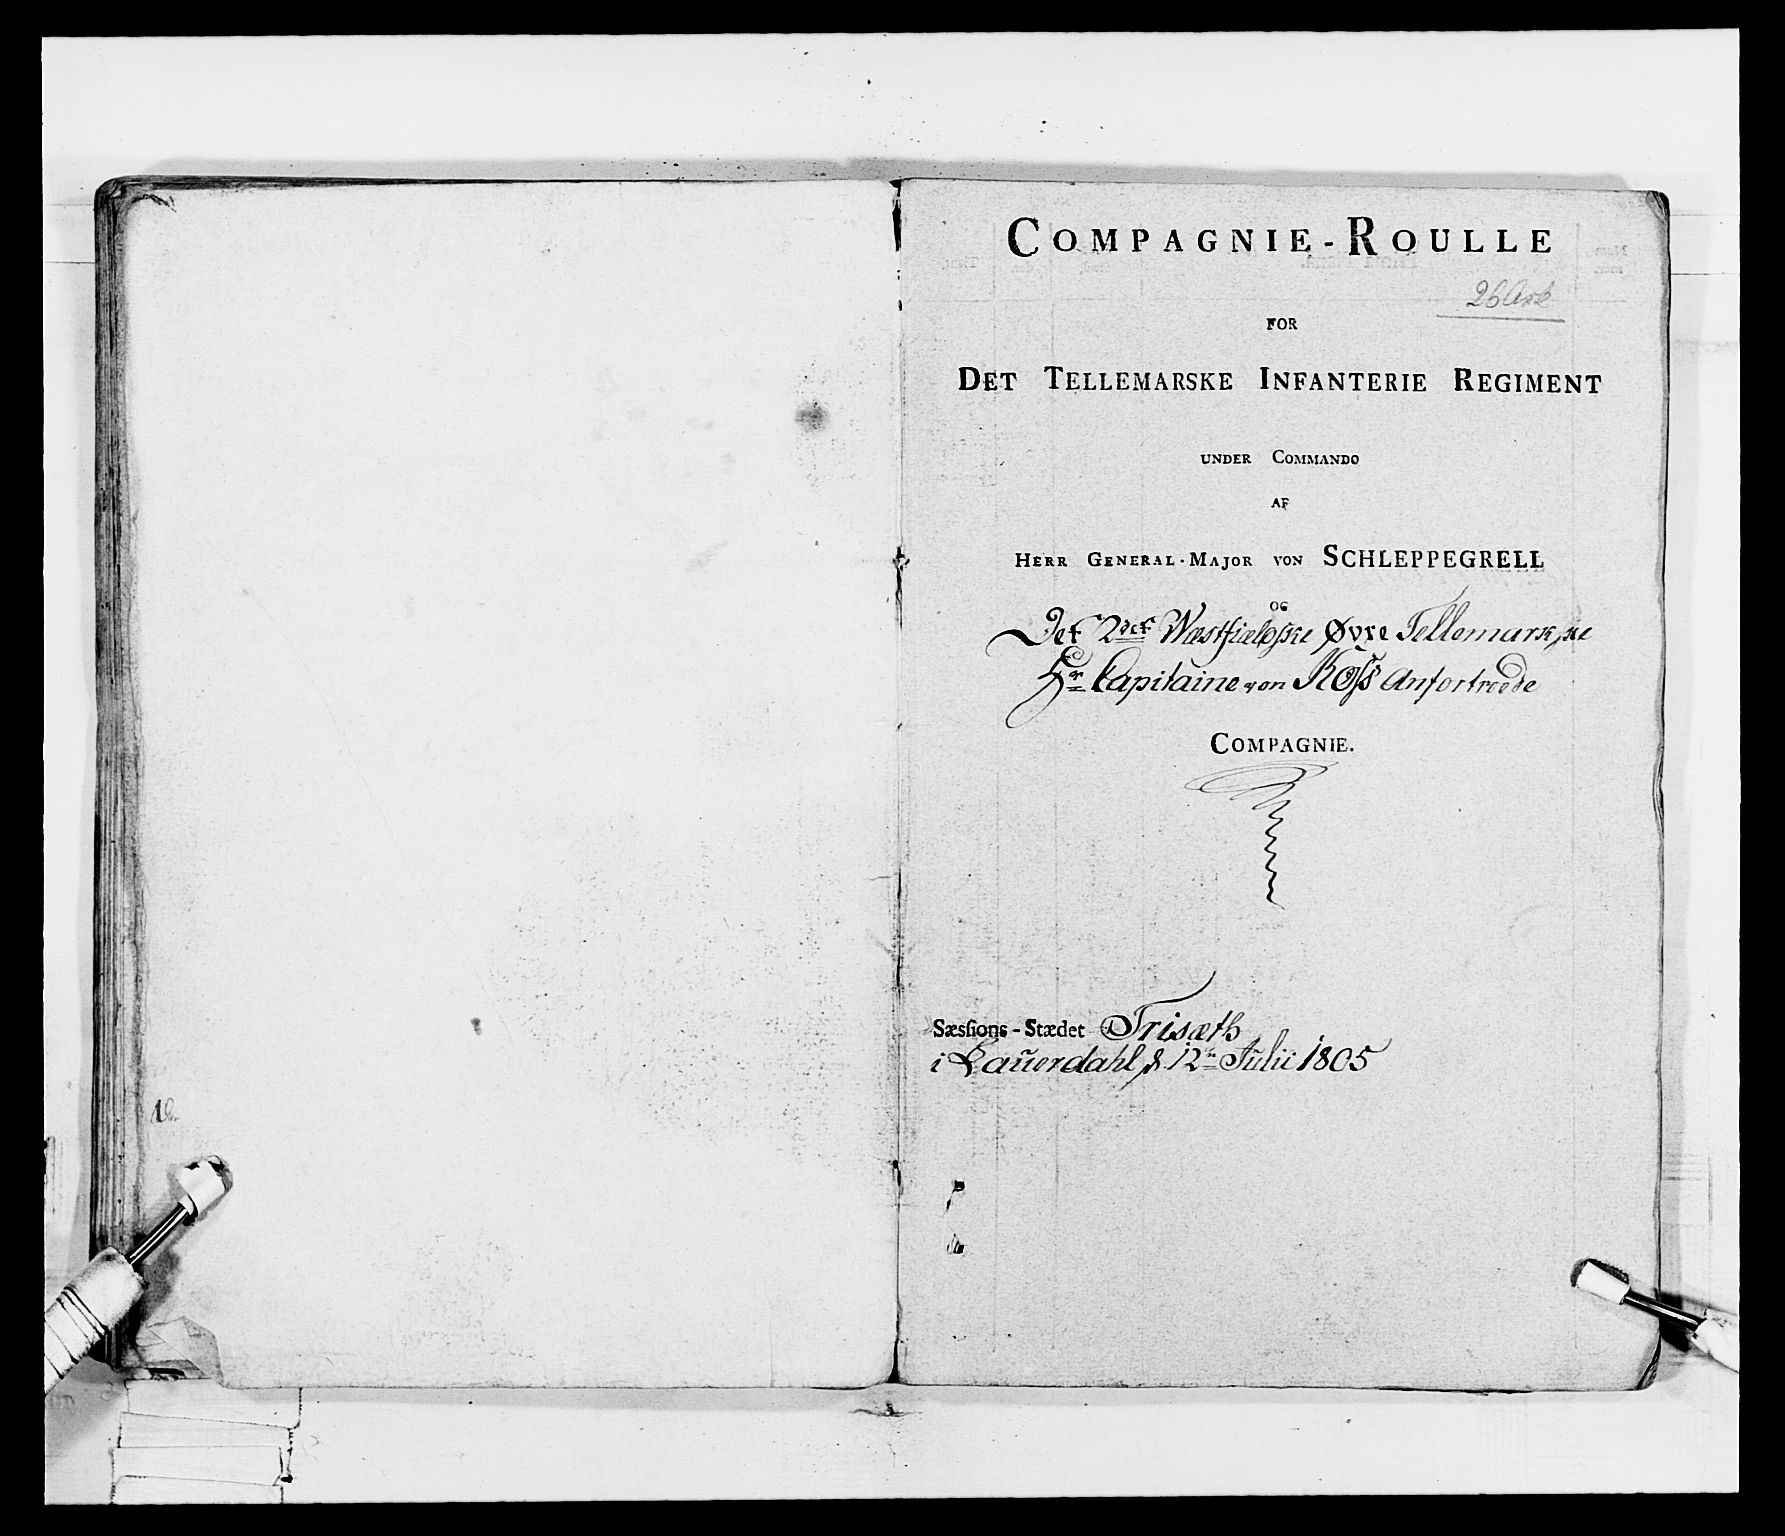 COMPAGNIE-ROULLE
26 Ark
FOR
DET TELLEMARSKE INFANTERIE REGIMENT
UNDER COMMANDO
AF
HERR GENERAL-MAJOR VON SCHLEPPEGRELL
OG
Det 2det Westfieldske Øvre Tellemarkske
Hr Capitaine von Koss Anfortroede
COMPAGNIE.
Sæsſions-Stædet Trisæth
i Lauerdahl d 12te Julii 1805